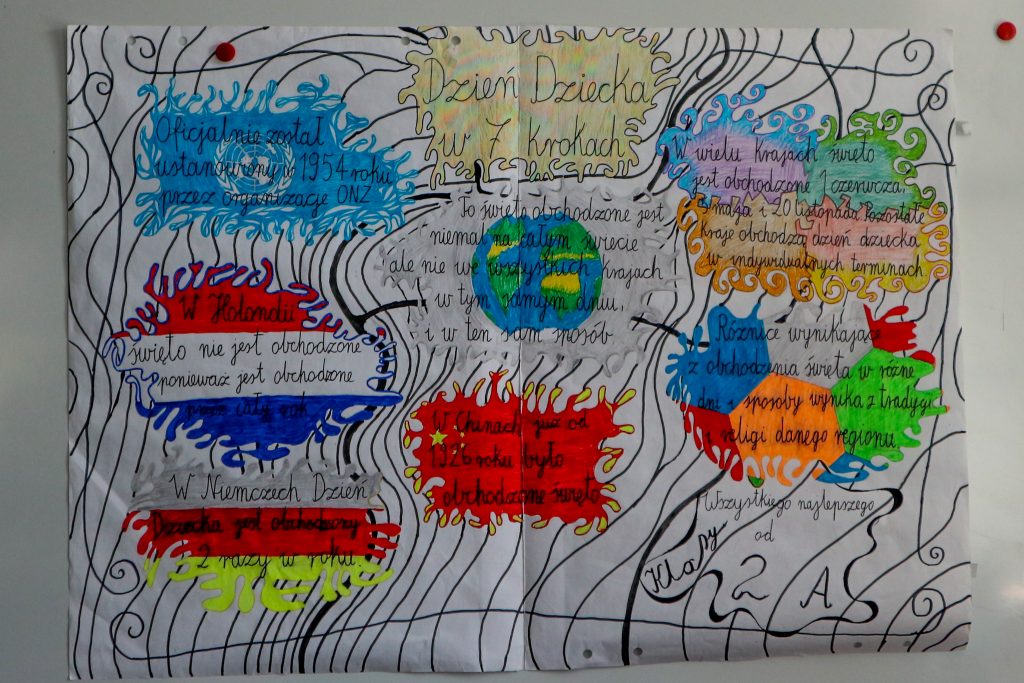 Dzień Dziecka
w 7 Krokach
Oficjalnie został
ustanowiony w 1954 roku
przez organizację ONZ
To święto obchodzone jest
niemal na całym świecie
ale nie we wszystkich krajach
w tym samym dniu,
i w ten sam sposób
W wielu krajach święto
jest obchodzone 1 czerwcza,
5 maja i 20 listopada Pozostałe
kraje obchodzą dzień dziecka
w indywidualnych terminach
W Holandii
święto nie jest obchodzone
ponieważ jest obchodzone
przez cały rok
W Chinach już od
1926 roku było
obchodzone święto
Różnice wynikające
z obchodzenia święta w różne
dni i sposoby wynika z tradycji
i religi danego regionu
W Niemczech Dzień
Dziecka jest obchodzony
2 razy w roku.
Wszystkiego najlepszego
od
Klasy
2 A